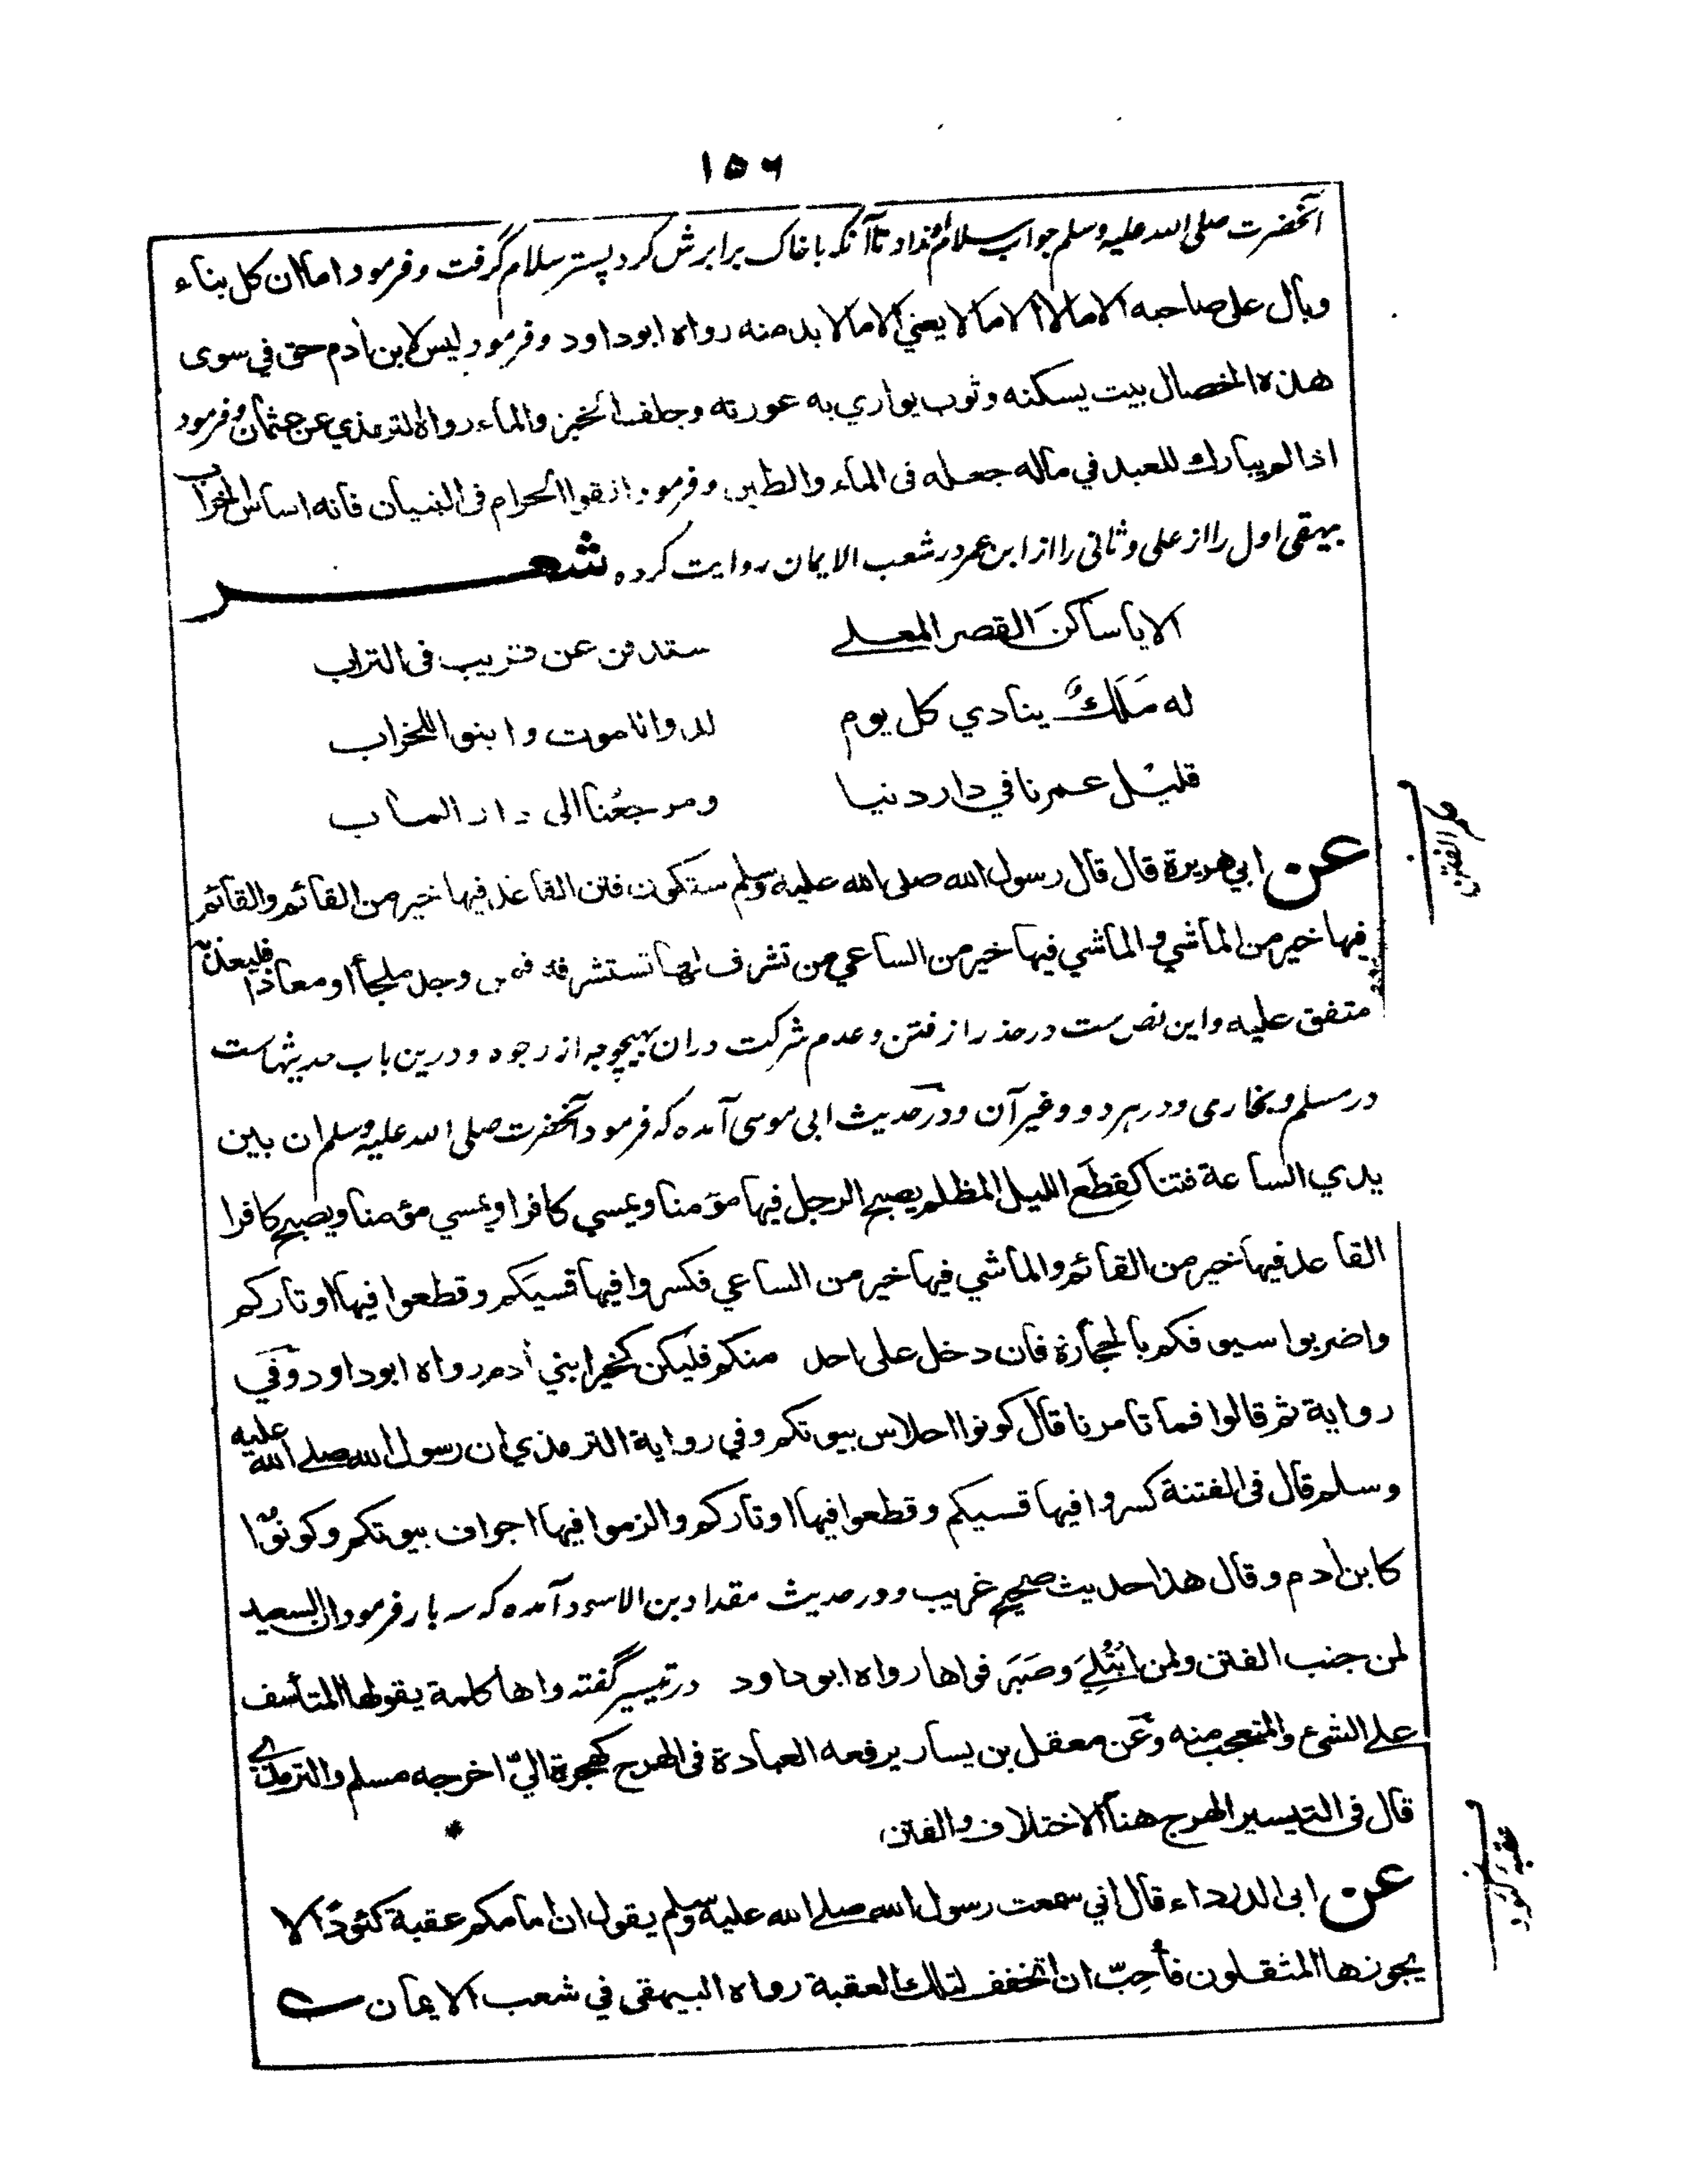 ۱۵۶
آنحضرت صلی اللہ علیہ وسلم جواب سلام او نداد تا آنکہ با خاک برابرش کرد پستر سلام گرفت و فرمود اما ان کل بناء
وبال علی صاحبه الا مالا الا مالا یعني الا مالا بد منه رواه ابوداود و فرمود لیس لابن اٰدم حق في سوی
هذه الخصال بیت یسکنه وثوب یواري به عورته وجلف الخبز والماء رواه الترمذي عن عثمان و فرمود
اذا لم یبارك للعبد في ماله جعله فی الماء والطین و فرمود اتقوا الحرام فی البنیان فانه اساس الخراب
بیہقی اول را از علی و ثانی را از ابن عمر در شعب الایمان روایت کردہ شعر
الا یا ساکن القصر المعلے ستدفن عن قریب فی التراب
له مَلَكٌ ینادي کل یوم لدوا للموت وابنوا للخراب
قلیل عمرنا في دار دنیا ومرجعُنا الی دار المآب
عن ابي هریرة قال قال رسول الله صلی الله علیه وسلم ستکون فتن القاعد فیها خیر من القائم والقائم
فیها خیر من الماشي والماشي فیها خیر من الساعي من تشرف لها تستشرفه فمن وجد ملجأ او معاذا فلیعذ به
متفق علیه و این نص ست در حذر از فتن و عدم شرکت دران بہیچ وجہ از وجوہ و درین باب حدیثہاست
در مسلم و بخاری و در ہر دو و غیر آن و در حدیث ابی موسی آمدہ کہ فرمود آنحضرت صلی اللہ علیہ وسلم ان بین
یدي الساعة فتنا کقِطَع اللیل المظلم یصبح الرجل فیها مؤمنا ویمسي کافرا ویمسي مؤمنا ویصبح کافرا
القاعد فیها خیر من القائم والماشي فیها خیر من الساعي فکسروا فیها قسیکم وقطعوا فیها اوتارکم
واضربوا سیوفکم بالحجارة فان دخل علی احد منکم فلیکن کخیر ابني اٰدم رواه ابوداود وفي
روایة ثم قالوا فما تامرنا قال کونوا احلاس بیوتکم وفي روایة الترمذي ان رسول الله صلے الله علیه
وسلم قال فی الفتنة کسروا فیها قسیکم وقطعوا فیها اوتارکم والزموا فیها اجواف بیوتکم وکونوا
کابن اٰدم وقال هذا حدیث صحیح غریب و در حدیث مقداد بن الاسود آمدہ کہ سہ بار فرمود ان السعید
لمن جنب الفتن ولمن ابْتُلِيَ وصَبَرَ فواها رواه ابوداود در تیسیر گفتہ واها کلمة یقولها المتأسف
علے الشئ والمتعجب منه وعَن معقل بن یسار یرفعه العبادة فی الهرج کهجرة اليّ اخرجه مسلم والترمذي
قال فی التیسیر الهرج هنا الاختلاف والفتن *
عن ابی الدرداء قال اني سمعت رسول الله صلے الله علیه وسلم یقول ان امامکم عقبة کئودا لا
یجوزها المثقلون فأحِبّ ان اتخفف لتلك العقبة رواه البیهقی في شعب الایمان